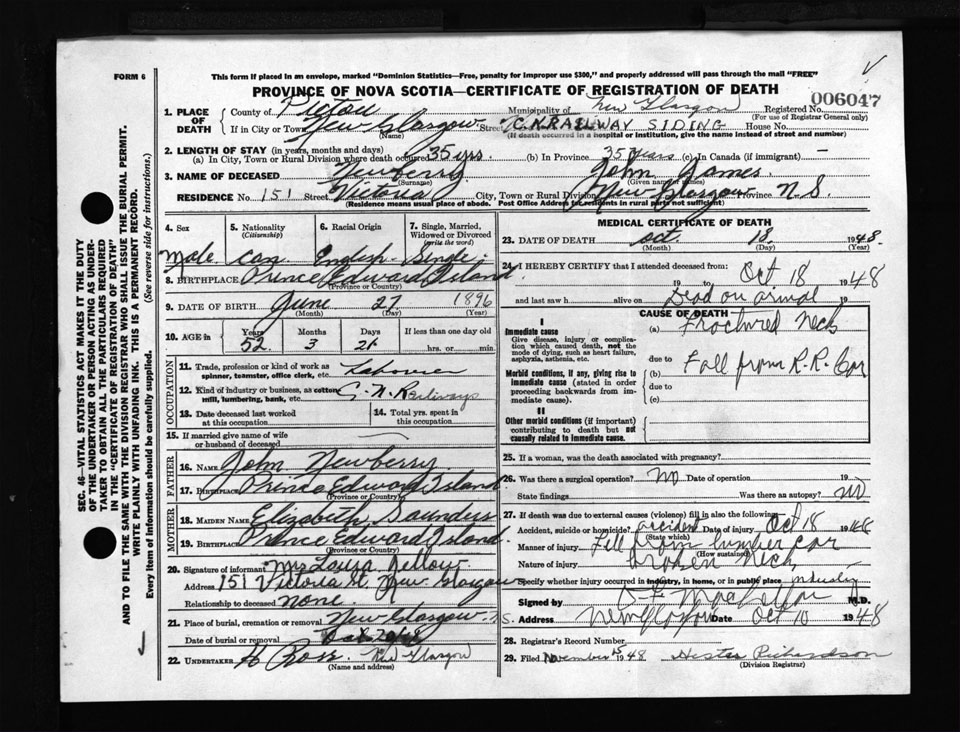 FORM 6
This form if placed in an envelope, marked "Dominion Statistics—Free, penalty for improper use $300," and properly addressed will pass through the mail "FREE"
PROVINCE OF NOVA SCOTIA—CERTIFICATE OF REGISTRATION OF DEATH
1. PLACE OF DEATH County of Pictou Municipality of New Glasgow Registered No. 006047
(For use of Registrar General only)
If in City or Town New Glasgow Street C.N. RAILWAY SIDING House No.
(Name) (If death occurred in a hospital or institution, give the name instead of street and number)
2. LENGTH OF STAY (in years, months and days)
(a) In City, Town or Rural Division where death occurred 35 yrs. (b) In Province 35 years (c) In Canada (if immigrant) —
3. NAME OF DECEASED Newberry John James.
(Surname) (Given names)
RESIDENCE No. 151 Street Victoria City, Town or Rural Division New Glasgow Province N.S.
(Residence means usual place of abode. Post Office Address for residents in rural parts not sufficient)
4. Sex 5. Nationality (Citizenship) 6. Racial Origin 7. Single, Married, Widowed or Divorced (write the word)
Male Can. English Single.
8. BIRTHPLACE Prince Edward Island
(Province or Country)
9. DATE OF BIRTH June 27 1896
(Month) (Day) (Year)
10. AGE in Years Months Days If less than one day old
52 3 21 hrs. or min.
OCCUPATION
11. Trade, profession or kind of work as spinner, teamster, office clerk, etc. Labourer
12. Kind of industry or business, as cotton mill, lumbering, bank, etc. C. N. Railways
13. Date deceased last worked at this occupation 14. Total yrs. spent in this occupation
15. If married give name of wife or husband of deceased —
FATHER
16. NAME John Newberry.
17. BIRTHPLACE Prince Edward Island.
(Province or Country)
MOTHER
18. MAIDEN NAME Elizabeth Saunders
19. BIRTHPLACE Prince Edward Island.
(Province or Country)
20. Signature of informant Mrs Louisa
Address 151 Victoria St, New Glasgow
Relationship to deceased none.
21. Place of burial, cremation or removal New Glasgow N.S.
Date of burial or removal Oct 20/48
22. UNDERTAKER H Ross New Glasgow
(Name and address)
MEDICAL CERTIFICATE OF DEATH
23. DATE OF DEATH Oct. 18 1948.
(Month) (Day)
24. I HEREBY CERTIFY that I attended deceased from
19 to Oct 18 1948
and last saw h alive on Dead on arrival 19
CAUSE OF DEATH
I
Immediate cause
Give disease, injury or complication which caused death, not the mode of dying, such as heart failure, asphyxia, asthenia, etc.
(a) Fractured Neck
due to
Morbid conditions, if any, giving rise to immediate cause (stated in order proceeding backwards from immediate cause).
(b) Fall from R.R. Car
due to
(c)
II
Other morbid conditions (if important) contributing to death but not causally related to immediate cause.
25. If a woman, was the death associated with pregnancy?
26. Was there a surgical operation? No Date of operation 19
State findings Was there an autopsy? No
27. If death was due to external causes (violence) fill in also the following:
Accident, suicide or homicide? accident Date of injury Oct 18 1948
(State which)
Manner of injury Fell from lumber car
(How sustained)
Nature of injury broken neck
Specify whether injury occurred in industry, in home, or in public place industry
Signed by M.D.
Address New Glasgow Date Oct 10 1948
28. Registrar's Record Number
29. Filed November 15 1948 Hester Richardson
(Division Registrar)
SEC. 46—VITAL STATISTICS ACT MAKES IT THE DUTY OF THE UNDERTAKER OR PERSON ACTING AS UNDERTAKER TO OBTAIN ALL THE PARTICULARS REQUIRED IN THE "CERTIFICATE OF REGISTRATION OF DEATH" AND TO FILE THE SAME WITH THE DIVISION REGISTRAR WHO SHALL ISSUE THE BURIAL PERMIT.
WRITE PLAINLY WITH UNFADING INK. THIS IS A PERMANENT RECORD.
Every item of information should be carefully supplied. (See reverse side for instructions.)